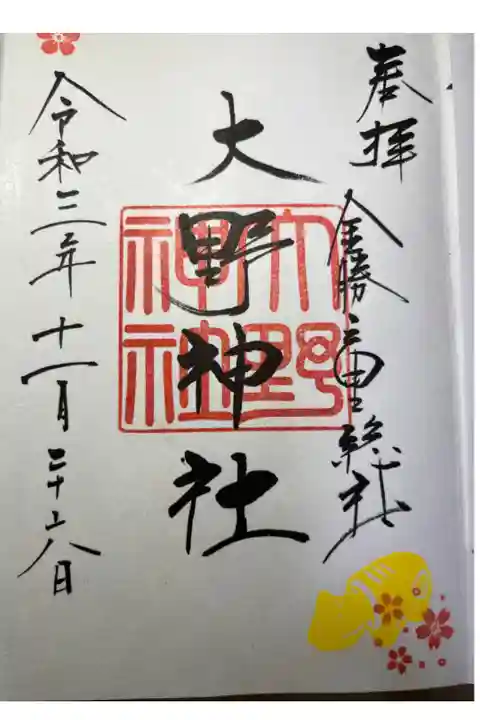 奉拝
金勝里総社
大野神社
大野神社
令和三年十一月二十六日